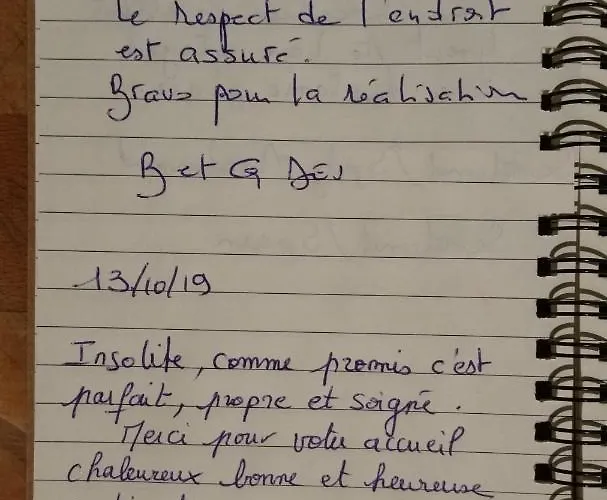 Le respect de l'endroit
est assuré.
Bravo pour la réalisation
B et G
13/10/19
Insolite, comme promis c'est
parfait, propre et soigné.
Merci pour votre accueil
chaleureux bonne et heureuse